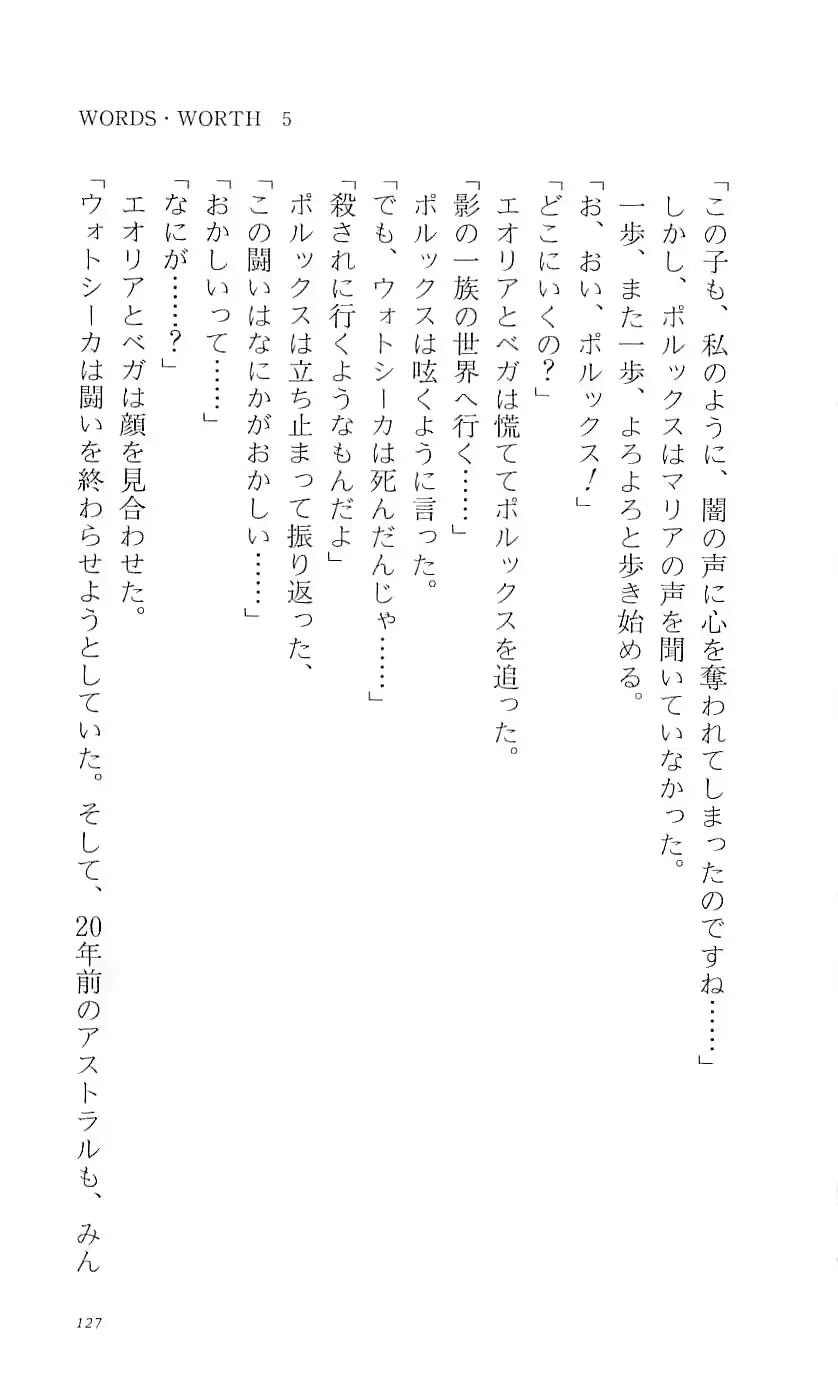 WORDS・WORTH 5
「この子も、私のように、闇の声に心を奪われてしまったのですね……」
しかし、ポルックスはマリアの声を聞いていなかった。
一歩、また一歩、よろよろと歩き始める。
「お、おい、ポルックス！」
「どこにいくの？」
エオリアとベガは慌ててポルックスを追った。
「影の一族の世界へ行く……」
ポルックスは呟くように言った。
「でも、ウォトシーカは死んだんじゃ……」
「殺されに行くようなもんだよ」
ポルックスは立ち止まって振り返った、
「この闘いはなにかがおかしい……」
「おかしいって……」
「なにが……？」
エオリアとベガは顔を見合わせた。
「ウォトシーカは闘いを終わらせようとしていた。そして、20年前のアストラルも、みん
127